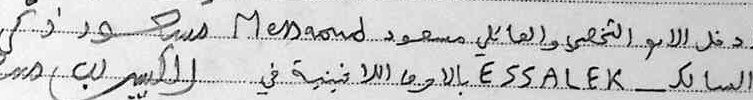 دخل الاسم الشخصي والعائلي مسعود Messaoud مسعود ذكر
السالك _ ESSALEK بالاحرف اللاتينية في الكبير